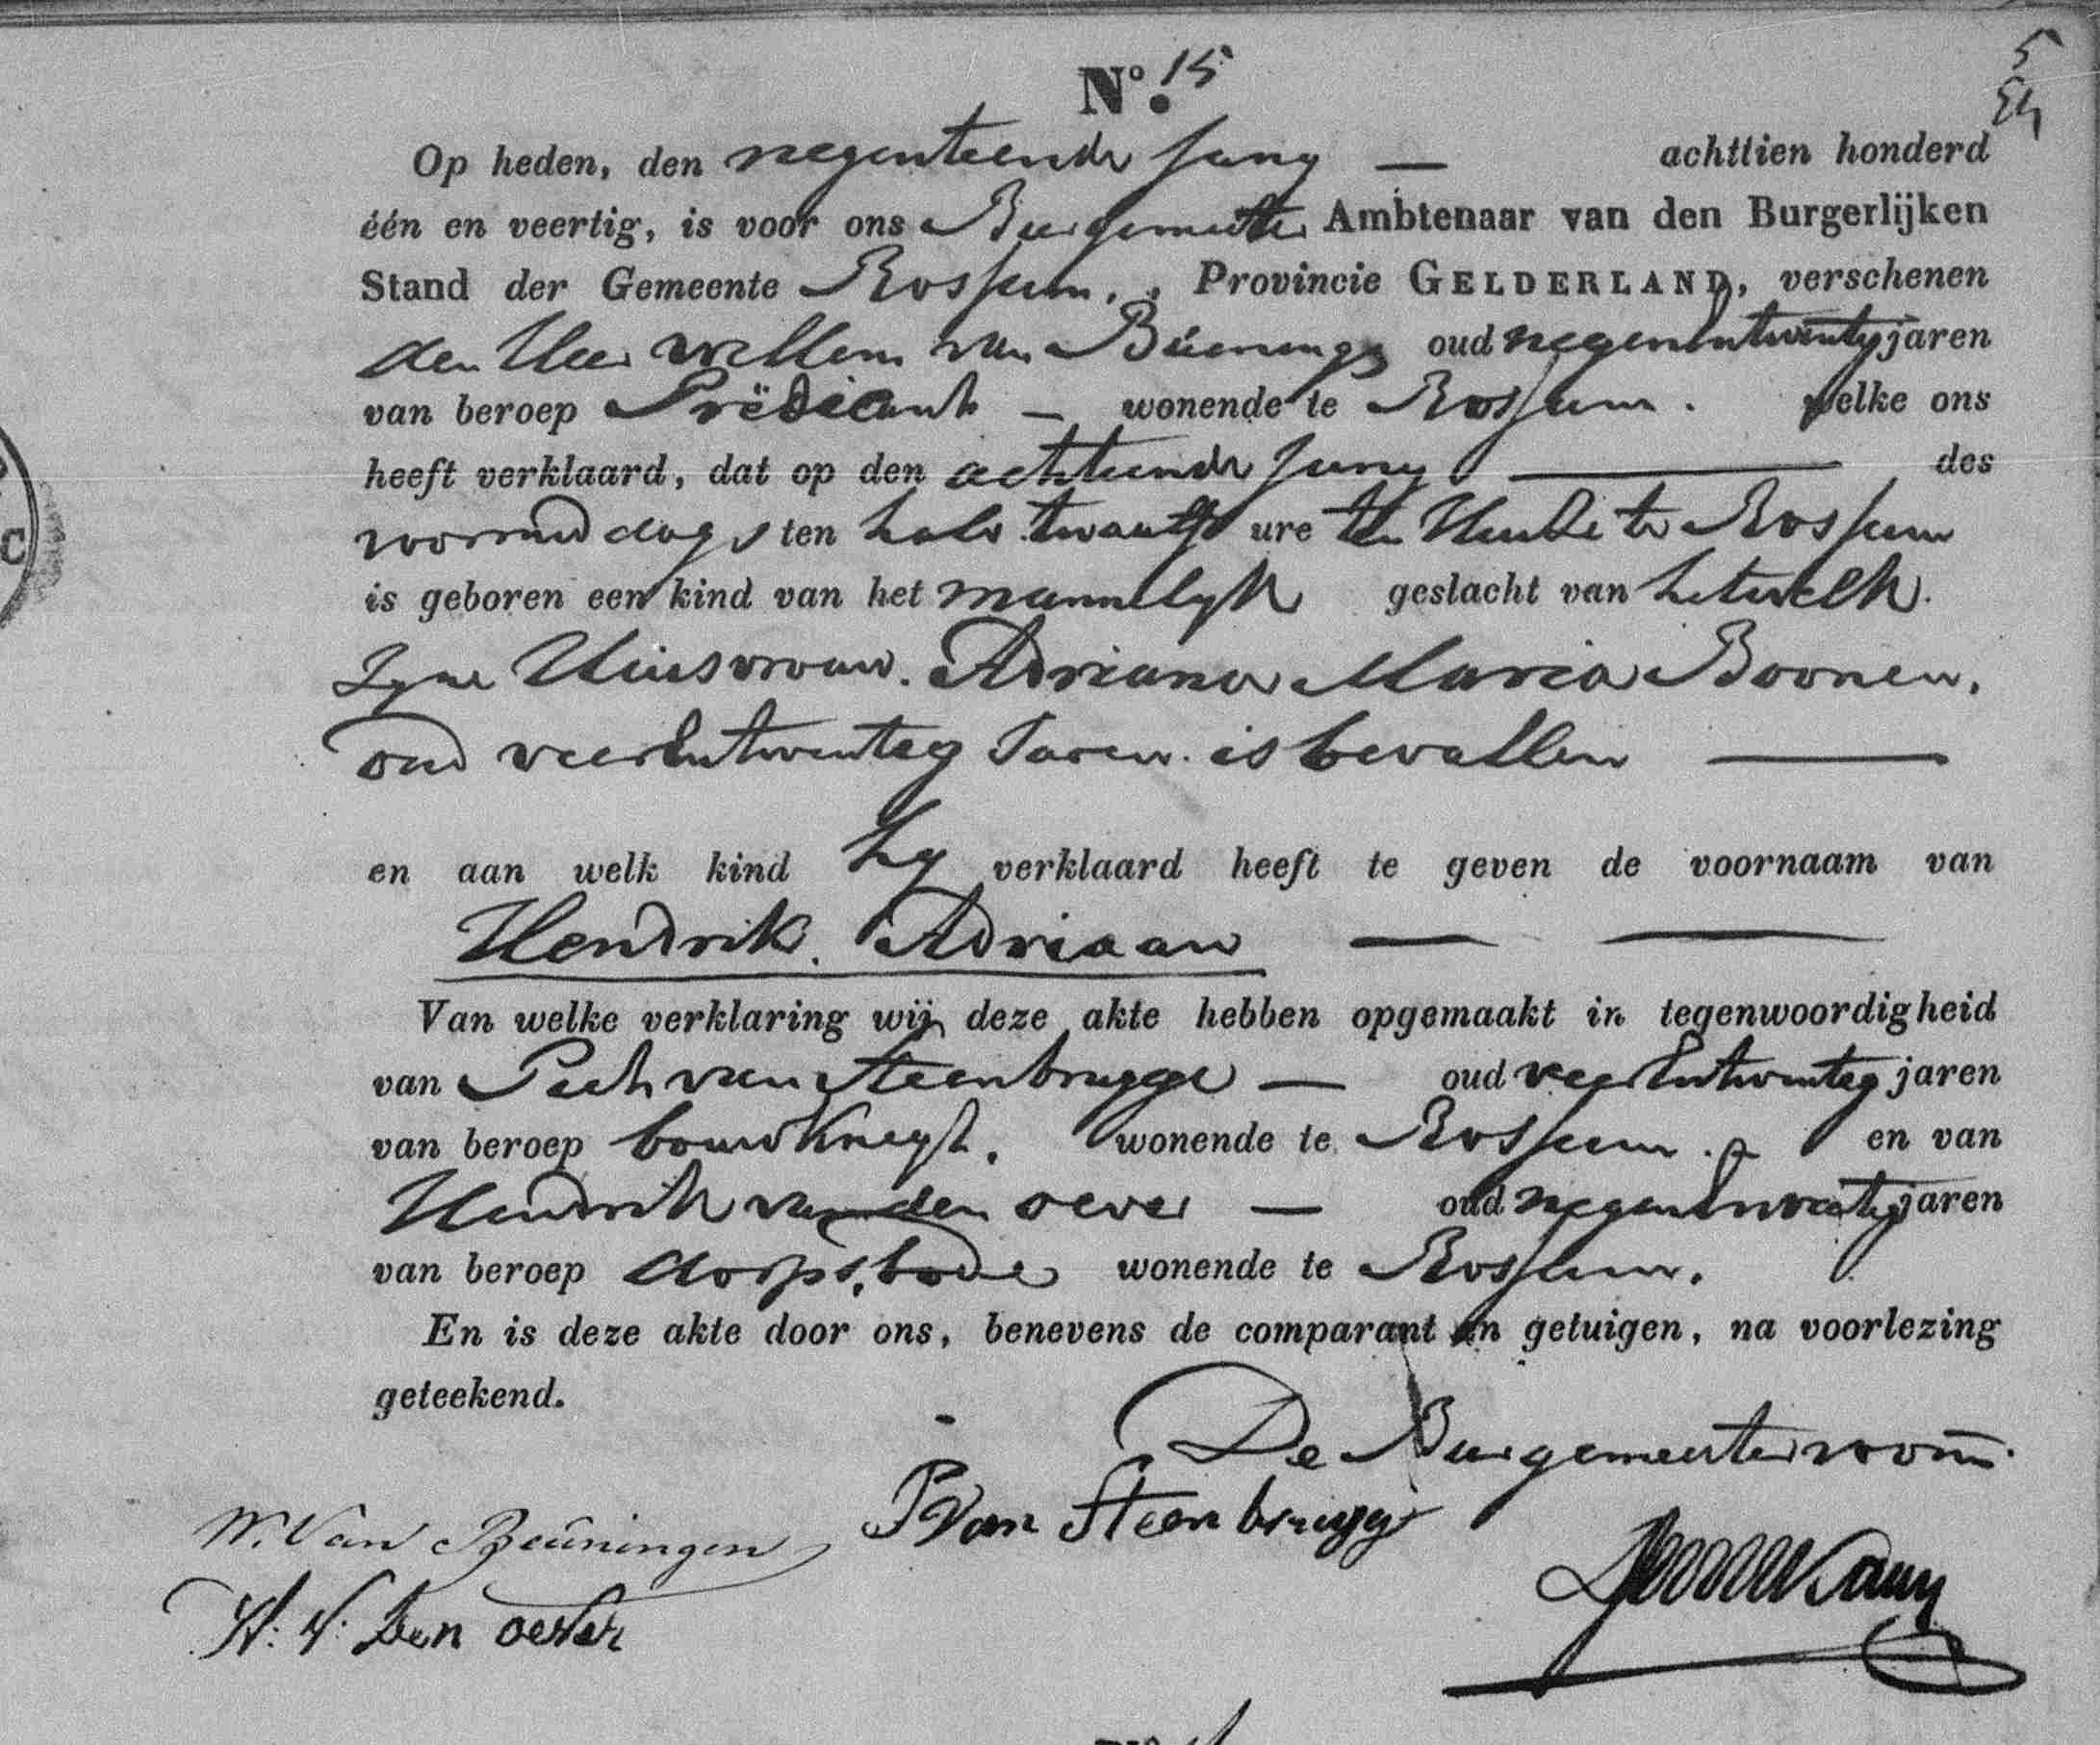 N.º 15
5
Op heden, den negenteende Juny — achttien honderd
één en veertig, is voor ons Burgemeester Ambtenaar van den Burgerlijken
Stand der Gemeente Rossum, Provincie GELDERLAND, verschenen
den Heer Willem van Búeninge oud negenentwintig jaren
van beroep Prëdicant — wonende te Rossum. welke ons
heeft verklaard, dat op den achttiende Juny — des
voormiddags ten half twaalf ure ten Huise te Rossum
is geboren een kind van het mannelyk geslacht van hetwelk
Zyne Huisvrouw. Adriana Maria Boonen,
oud vierentwenteg Jaren is bevallen —
en aan welk kind hy verklaard heeft te geven de voornaam van
Hendrik. Adriaan — —
Van welke verklaring wij deze akte hebben opgemaakt in tegenwoordigheid
van Piet van Steenbrugge — oud veerentwenteg jaren
van beroep bouwknegt. wonende te Rossum. en van
Hendrik van den oever — oud jaren
van beroep dorpsbode wonende te Rossum.
En is deze akte door ons, benevens de comparant en getuigen, na voorlezing
geteekend.
De Burgemeester voorn.
W. Van Beuningen P Van Steenbrugge
H. V. Den oever